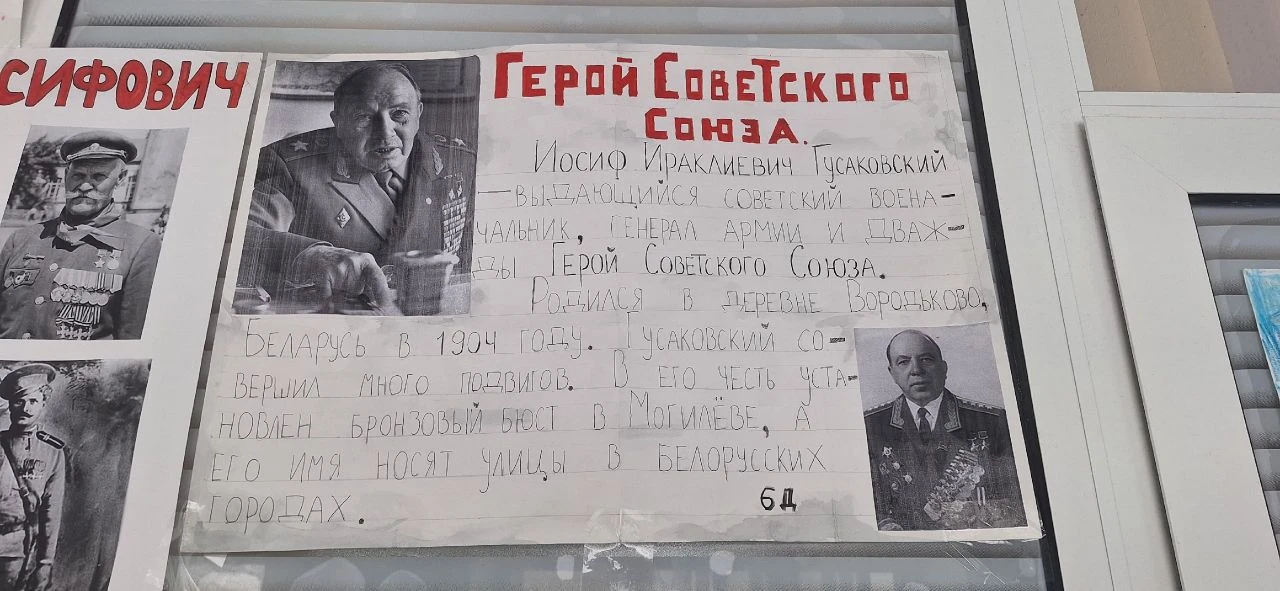 СИФОВИЧ
ГЕРОЙ СОВЕТСКОГО
СОЮЗА.
ИОСИФ ИРАКЛИЕВИЧ ГУСАКОВСКИЙ
—ВЫДАЮЩИЙСЯ СОВЕТСКИЙ ВОЕНА-
ЧАЛЬНИК, ГЕНЕРАЛ АРМИИ И ДВАЖ-
ДЫ ГЕРОЙ СОВЕТСКОГО СОЮЗА.
РОДИЛСЯ В ДЕРЕВНЕ ВОРОДЬКОВО,
БЕЛАРУСЬ В 1904 ГОДУ. ГУСАКОВСКИЙ СО-
ВЕРШИЛ МНОГО ПОДВИГОВ. В ЕГО ЧЕСТЬ УСТА-
НОВЛЕН БРОНЗОВЫЙ БЮСТ В МОГИЛЁВЕ, А
ЕГО ИМЯ НОСЯТ УЛИЦЫ В БЕЛОРУССКИХ
ГОРОДАХ.
6Д